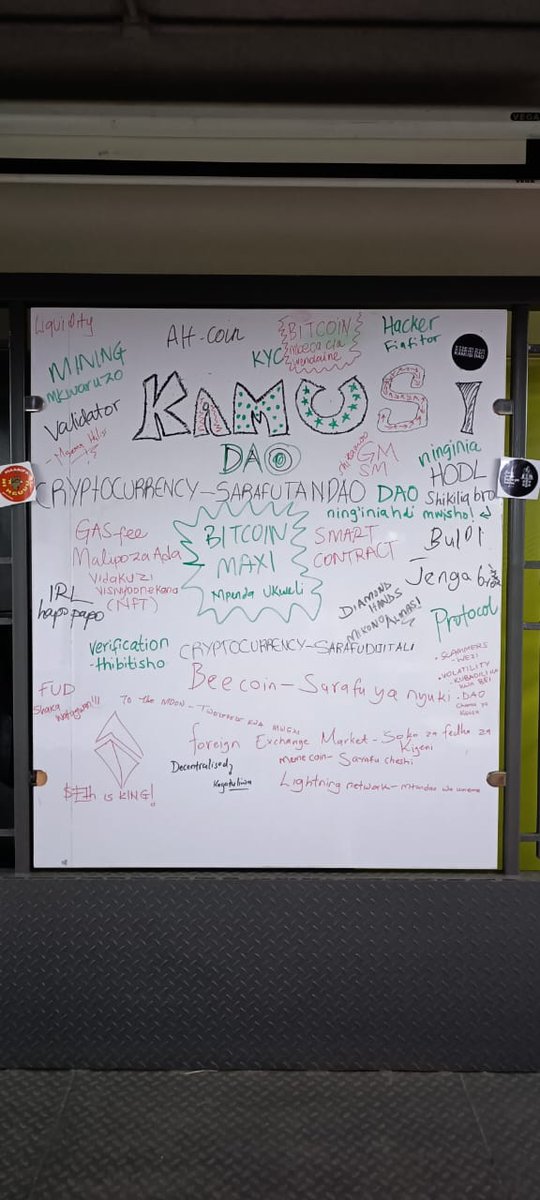 VEGA
Liquidity
Alt-coin
BITCOIN
Hacker
Fiafitor
KYC
MINING
Mkwaruzo
Validator
KAMUSI
DAO
GM
SM
ninginia
HODL
Shikilia bro
CRYPTOCURRENCY-SARAFUTANDAO
DAO
ning'inia hdi mwisho!
GAS-fee
Malipo za Ada
Vidakuzi
Visivyoonekana
(NFT)
BITCOIN
MAXI
Mpenda Ukweli
SMART
CONTRACT
BUIDL
- Jenga bro
IRL
hapo papo
DIAMOND
HANDS
MIKONO ALMASI
Protocol
verification
-thibitisho
CRYPTOCURRENCY-SARAFUDIJITALI
Beecoin - Sarafu ya nyuki
• SCAMMERS
- WEZI
• VOLATILITY
- KUBADILIKA
KWA BEI
• DAO
FUD
Shaka
To the MOON - TWELEKEE KWA MWEZI
foreign Exchange Market - Soko za fedha za
Kigeni
Meme coin - Sarafu cheshi
Decentralised
Kugatuliwa
$Eth is KING!
Lightning network - mtandao wa umeme